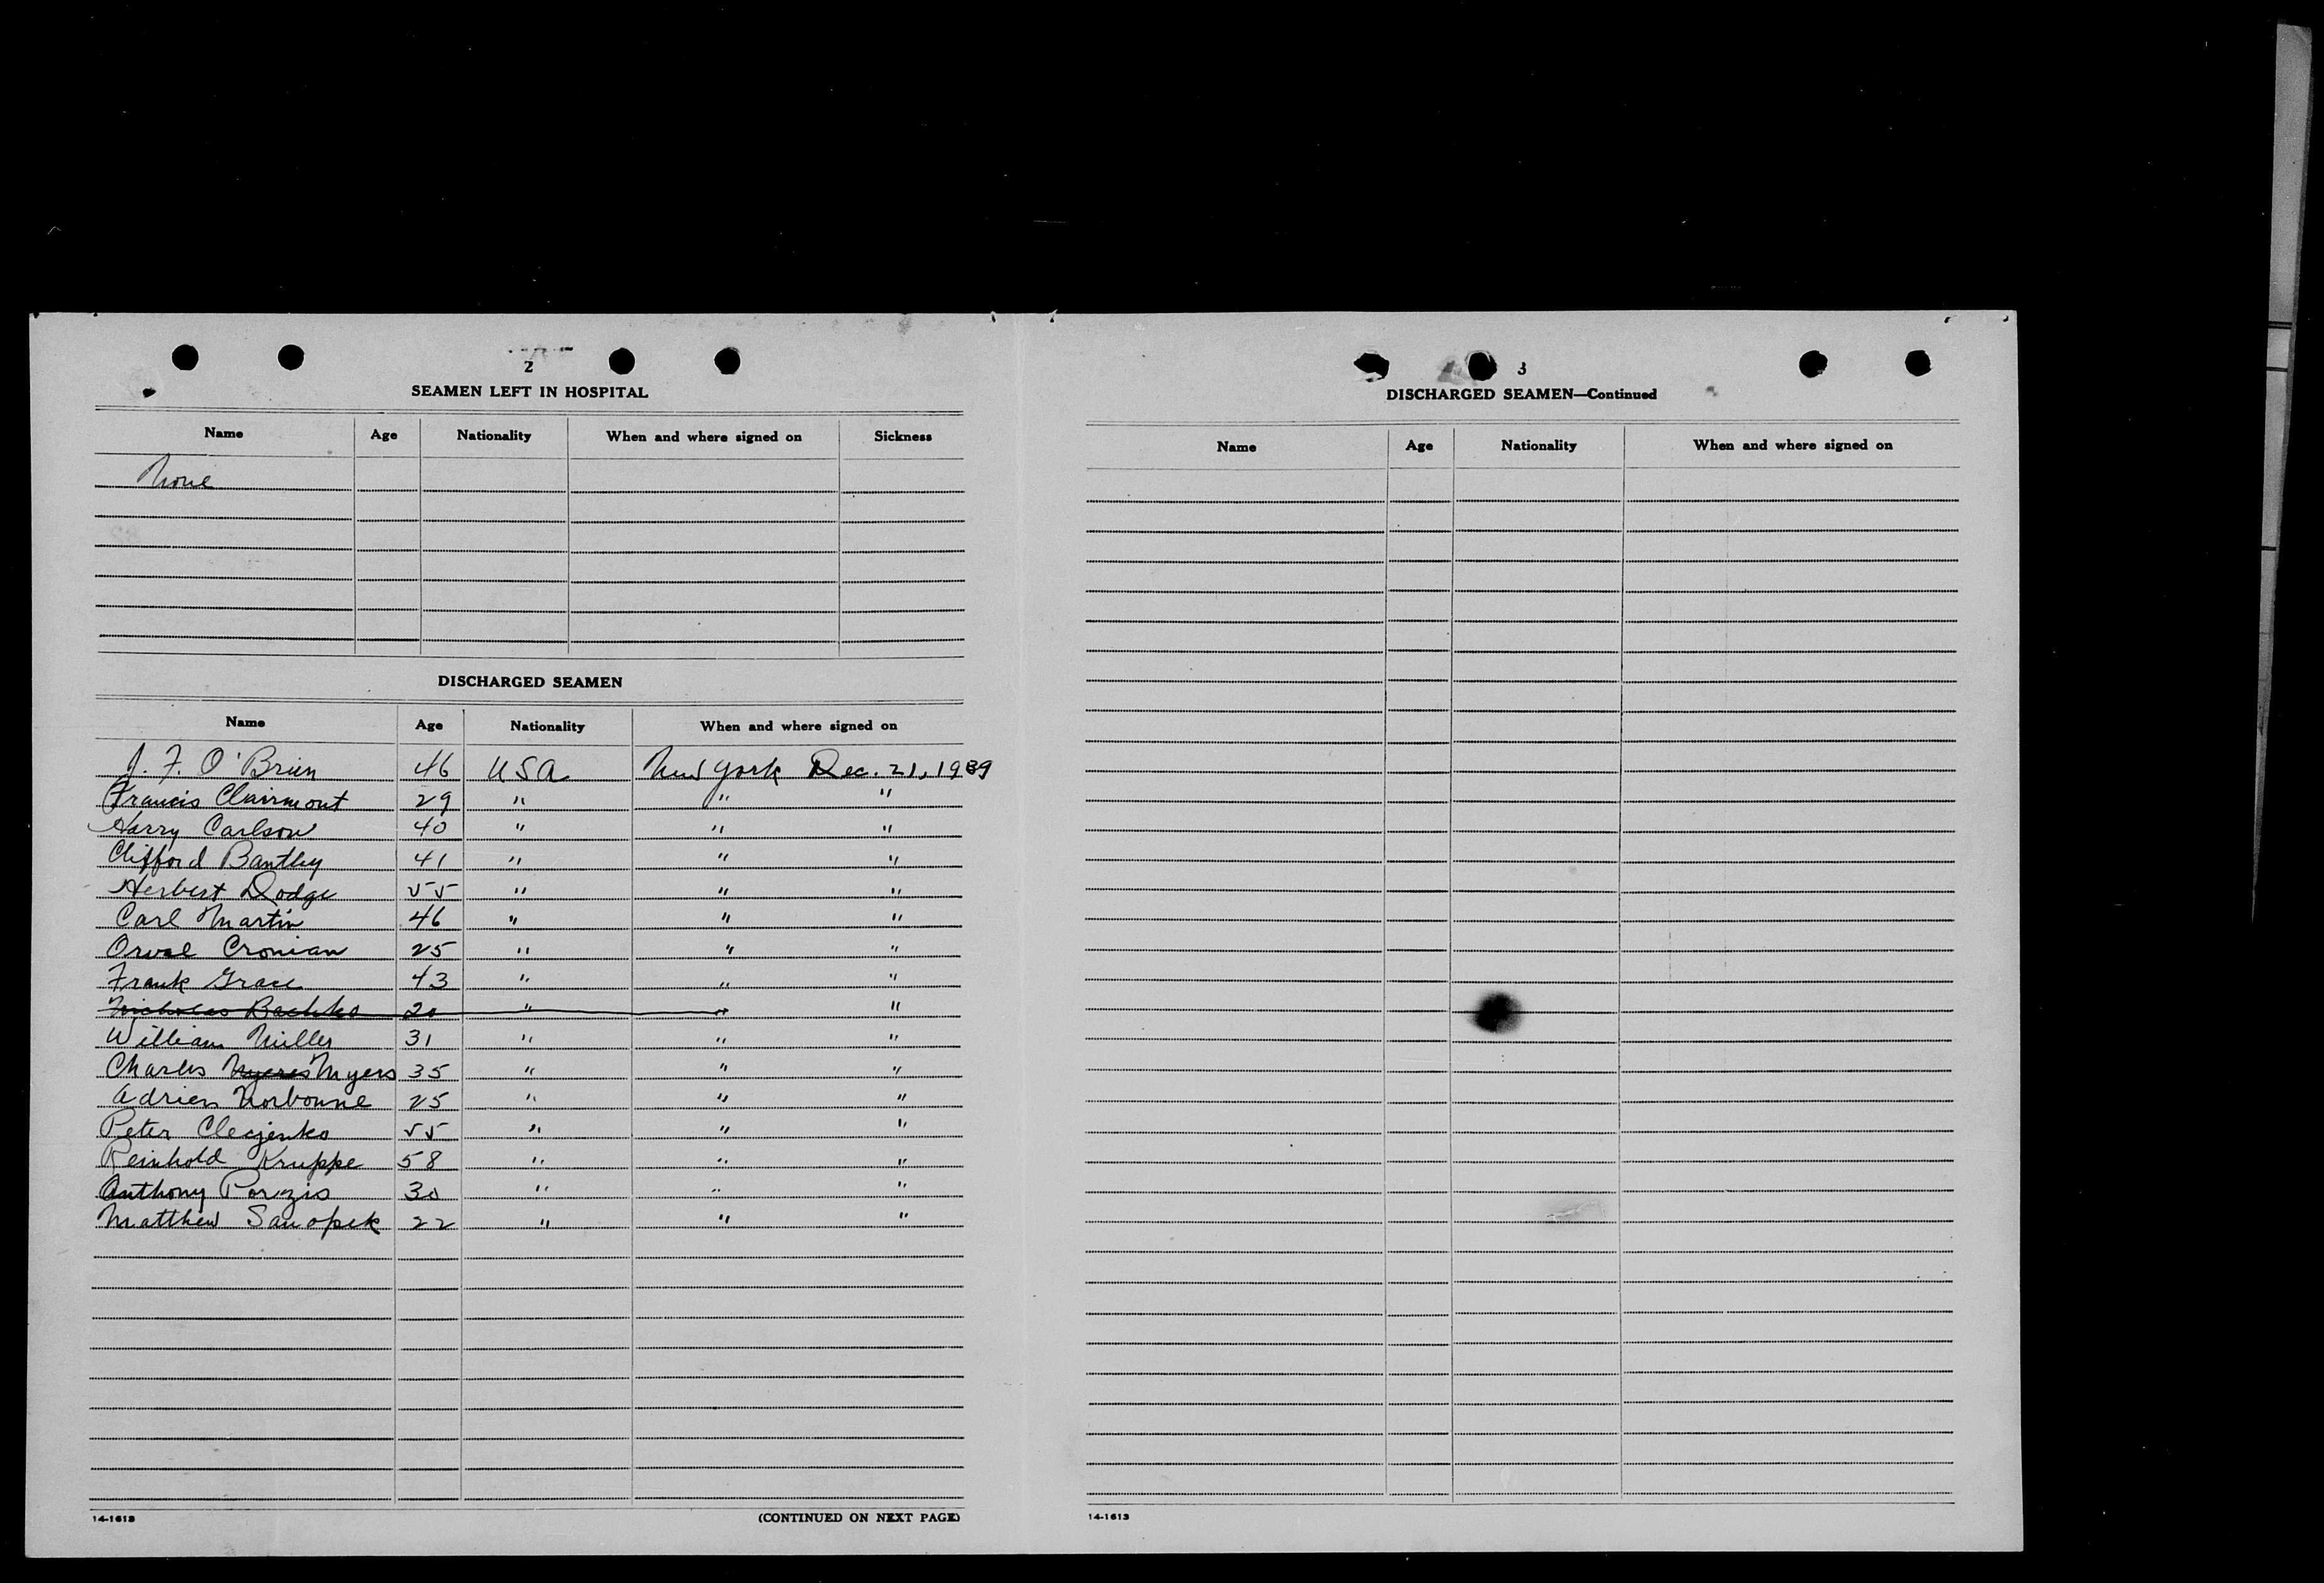 2
SEAMEN LEFT IN HOSPITAL
Name Age Nationality When and where signed on Sickness
None
DISCHARGED SEAMEN
Name Age Nationality When and where signed on
J. F. O'Brien 46 USA New York Dec. 21, 1939
Francis Clairmont 29 " " "
Harry Carlson 40 " " "
Clifford Bantley 41 " " "
Herbert Dodge 55 " " "
Carl Martin 46 " " "
Orval Cronian 25 " " "
Frank Grace 43 " " "
Nicholas Bachko 20 " " "
William Miller 31 " " "
Charles Myeres Myers 35 " " "
Adrien Norbonne 25 " " "
Peter Clecjenko 55 " " "
Reinhold Kruppe 58 " " "
Anthony Porzis 30 " " "
Matthew Sanopek 22 " " "
14-1613 (CONTINUED ON NEXT PAGE)
3
DISCHARGED SEAMEN—Continued
Name Age Nationality When and where signed on
14-1613